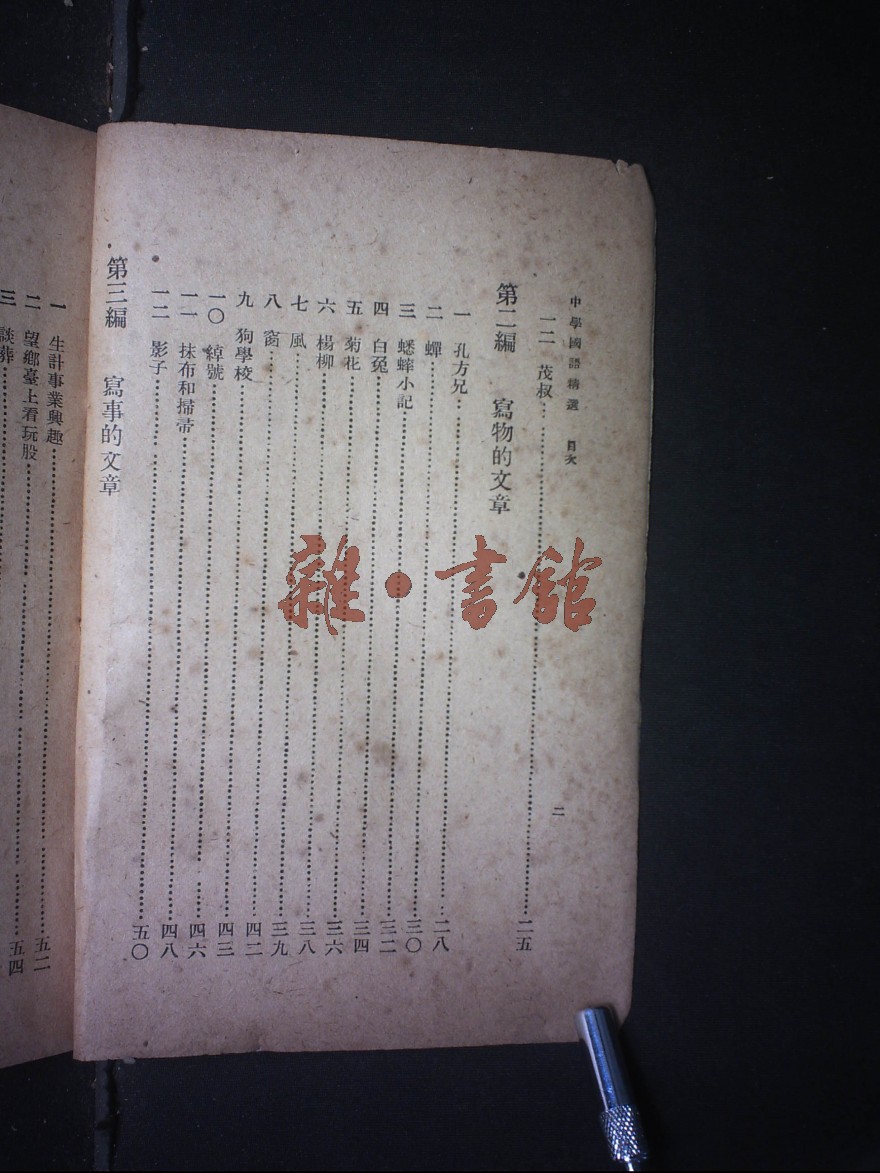 中學國語精選 目次 二
一二 茂叔……二五
第二編 寫物的文章
一 孔方兄……二八
二 蟬……三〇
三 蟋蟀小記……三二
四 白兔……三四
五 菊花……三六
六 楊柳……三八
七 風……三九
八 窗……四二
九 狗學校……四三
一〇 綽號……四六
一一 抹布和掃帚……四八
一二 影子……五〇
第三編 寫事的文章
一 生計事業興趣……五二
二 望鄉臺上看玩股……五四
三 談葬……
雜·書館